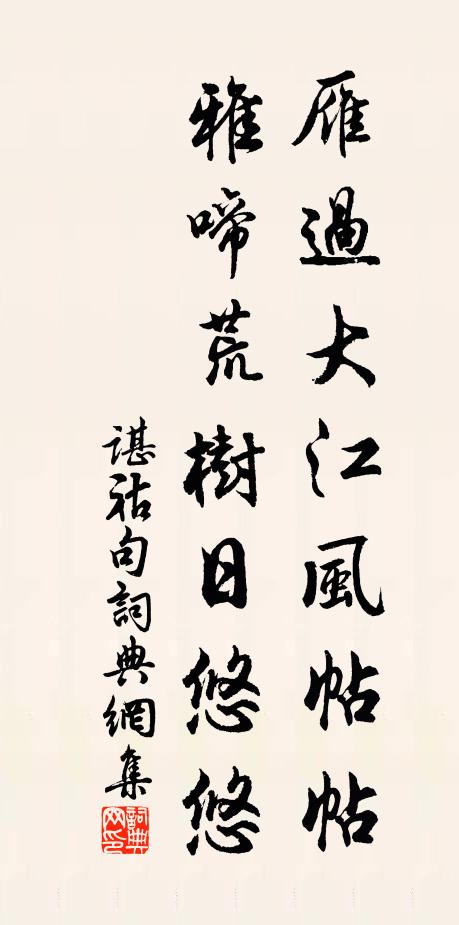 雁過大江風帖帖
雅啼荒樹日悠悠
諶祜句詞典網集
詞典網印